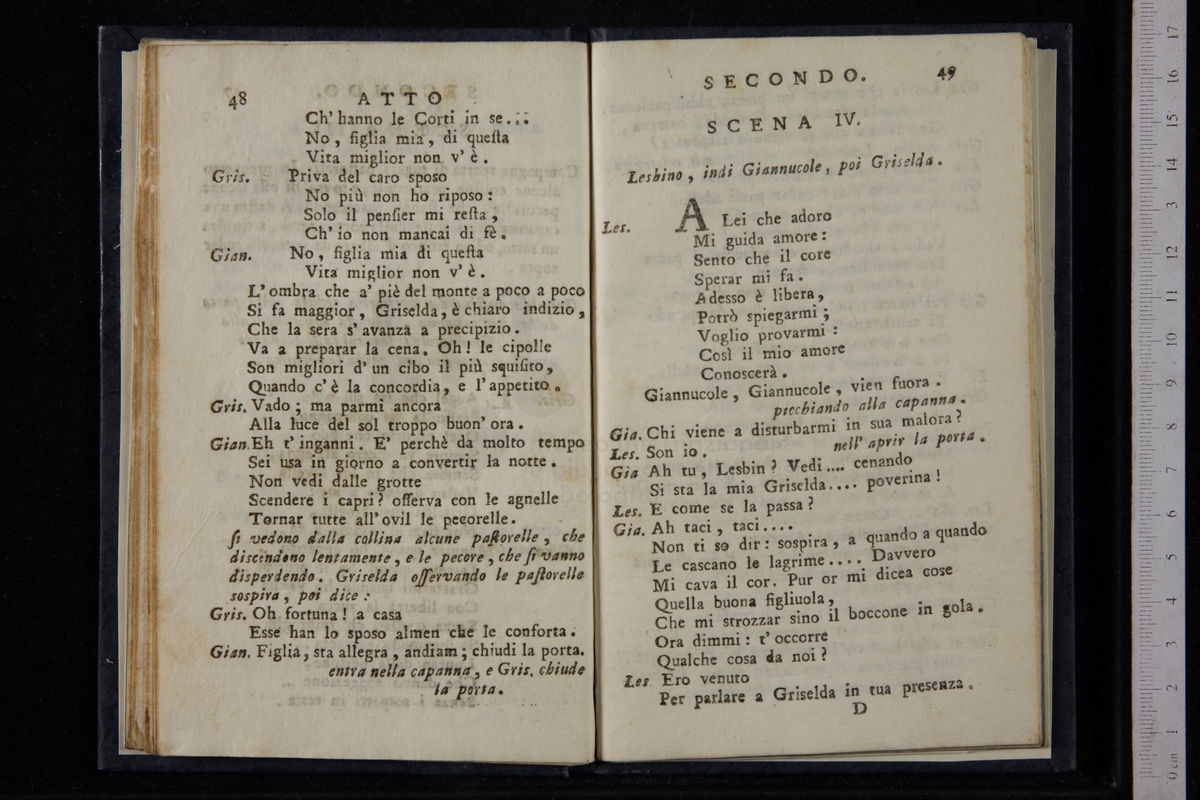 48 ATTO
Ch' hanno le Corti in se....
No, figlia mia, di questa
Vita miglior non v' è.
Gris. Priva del caro sposo
No più non ho riposo:
Solo il pensier mi resta,
Ch' io non mancai di fè.
Gian. No, figlia mia di questa
Vita miglior non v' è.
L' ombra che a' piè del monte a poco a poco
Si fa maggior, Griselda, è chiaro indizio,
Che la sera s' avanza a precipizio.
Va a preparar la cena. Oh! le cipolle
Son migliori d' un cibo il più squisito,
Quando c' è la concordia, e l' appetito.
Gris. Vado; ma parmi ancora
Alla luce del sol troppo buon' ora.
Gian. Eh t' inganni. E' perchè da molto tempo
Sei usa in giorno a convertir la notte.
Non vedi dalle grotte
Scendere i capri? osserva con le agnelle
Tornar tutte all' ovil le pecorelle.
si vedono dalla collina alcune pastorelle, che
discendono lentamente, e le pecore, che si vanno
disperdendo. Griselda osservando le pastorelle
sospira, poi dice:
Gris. Oh fortuna! a casa
Esse han lo sposo almen che le conforta.
Gian. Figlia, sta allegra, andiam; chiudi la porta.
entra nella capanna, e Gris. chiude
la porta.
SECONDO. 49
SCENA IV.
Lesbino, indi Giannucole, poi Griselda.
Les. A Lei che adoro
Mi guida amore:
Sento che il core
Sperar mi fa.
Adesso è libera,
Potrò spiegarmi;
Voglio provarmi:
Così il mio amore
Conoscerà.
Giannucole, Giannucole, vien fuora.
picchiando alla capanna.
Gia. Chi viene a disturbarmi in sua malora?
Les. Son io. nell' aprir la porta.
Gia Ah tu, Lesbin? Vedi.... cenando
Si sta la mia Griselda.... poverina!
Les. E come se la passa?
Gia. Ah taci, taci....
Non ti so dir: sospira, a quando a quando
Le cascano le lagrime.... Davvero
Mi cava il cor. Pur or mi dicea cose
Quella buona figliuola,
Che mi strozzar sino il boccone in gola.
Ora dimmi: t' occorre
Qualche cosa da noi?
Les. Ero venuto
Per parlare a Griselda in tua presenza.
D
0 cm 1 2 3 4 5 6 7 8 9 10 11 12 13 14 15 16 17